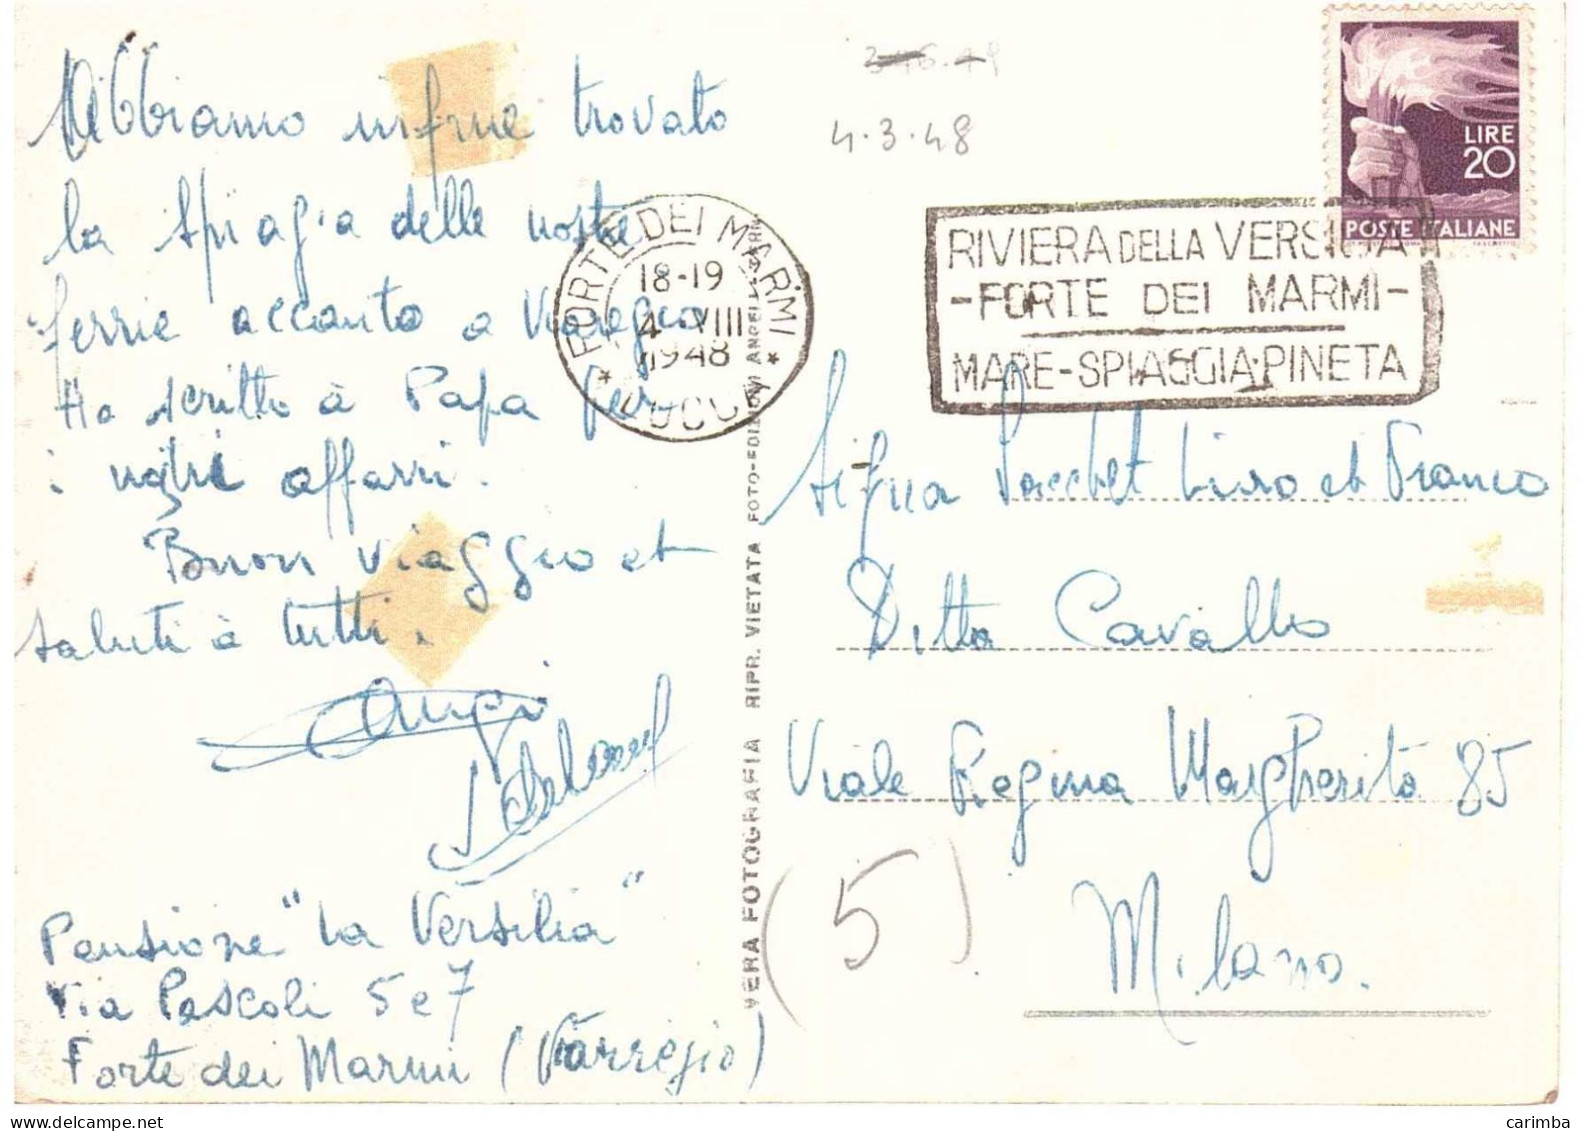 Abbiamo infine trovato
la spiagia delle nostre
ferrie accanto a Viaregio
Ho scritto à Papa per
i vostri affarri.
Buon viaggio et
saluti à tutti.
Pensione "La Versilia"
Via Pascoli 5 e 7
Forte dei Marmi (Viarregio)
VERA FOTOGRAFIA RIPR. VIETATA FOTO-EDIZIONI
346.49
4.3.48
FORTE DEI MARMI
18-19
4 VIII
1948
LUCCA
RIVIERA DELLA VERSILIA
-FORTE DEI MARMI-
MARE-SPIAGGIA-PINETA
LIRE
20
POSTE ITALIANE
Sigra Sacchet Lina et Franco
Ditta Cavallo
Viale Regina Margherita 85
Milano.
(5)
carimba